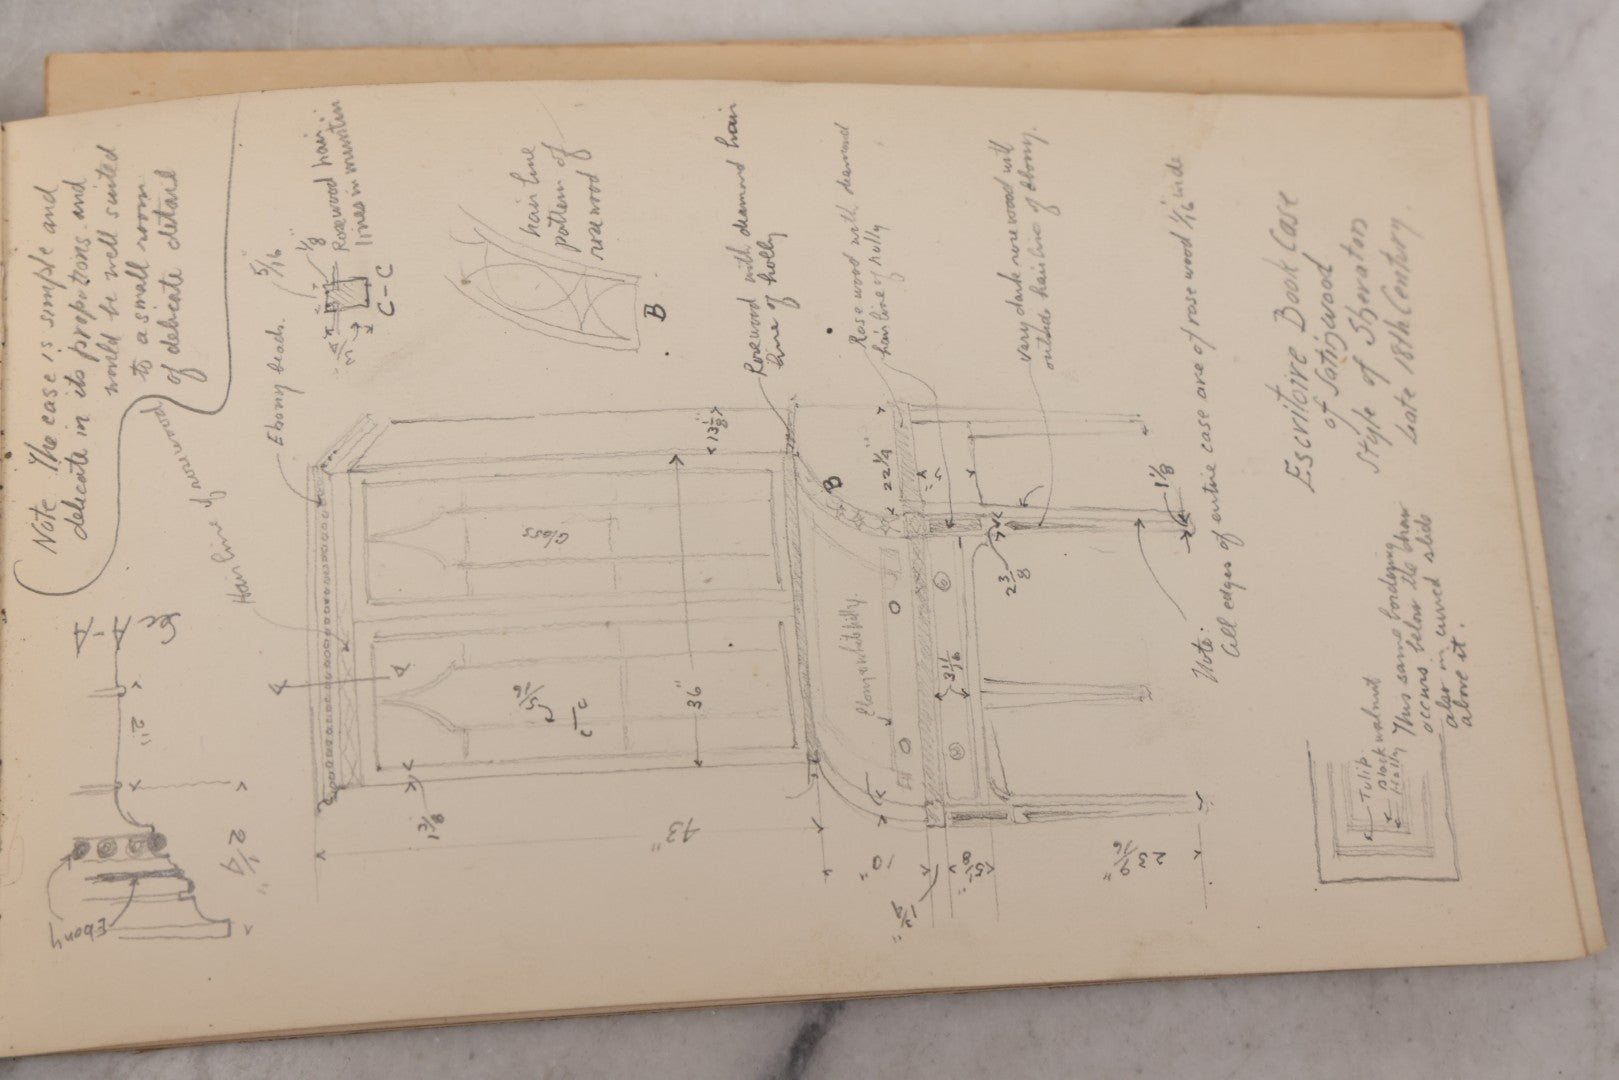 Note. The case is simple and
delicate in its proportions and
would be well suited
to a small room
of delicate detail
Ebony
2 1/4"
2"
Hair line of rosewood
Ebony beads.
5/16"
1/8"
Rosewood hair:
lines in muntin
C-C
hair line
pattern of
rosewood
B
Rosewood with diamond hair
line of holly
Rose wood with diamond
hair line of holly
very dark rosewood with
outside hair line of Ebony.
Glass
A
A
C-C
36"
13 1/8"
1 3/8
43"
B
22 1/4"
5"
10"
1 3/4"
5 1/8"
3 1/16
2 3/8
1 1/8
23 7/16"
Note:
All edges of entire case are of rose wood 1/16" wide
Escritoire Book Case
of Satinwood
Style of Sheraton
Late 18th Century.
Tulip
Black walnut
Holly
This same bordering
occurs below the draw
also on curved slide
above it.